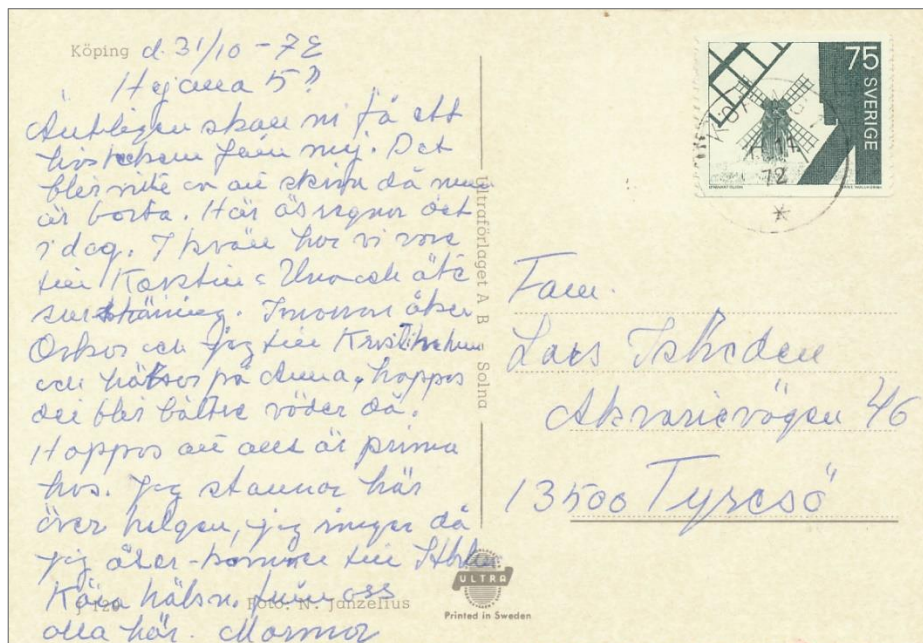 Köping d. 31/10 - 72
Hej alla 5?
Äntligen skall ni få ett
livstecken från mej. Det
blir inte av att skriva då man
är borta. Här ösregnar det
i dag. I kväll har vi vore
till Kerstin & Uno och äté
surströming. Imorron åker
Oskar och jag till
och hälsar på Anna, hoppas
det blir bättre väder då.
Hoppas att allt är prima
hos. Jag stannar här
över helgen, jag ringer då
jag åter-kommer till Sthlm
Kära hälsn. från oss
alla här. Mormor
J 120 Foto: N. Janzelius
Ultraförlaget A B Solna
ULTRA
Printed in Sweden
75 SVERIGE
72
Fam.
Lars
Akvarievägen 46
13500 Tyresö